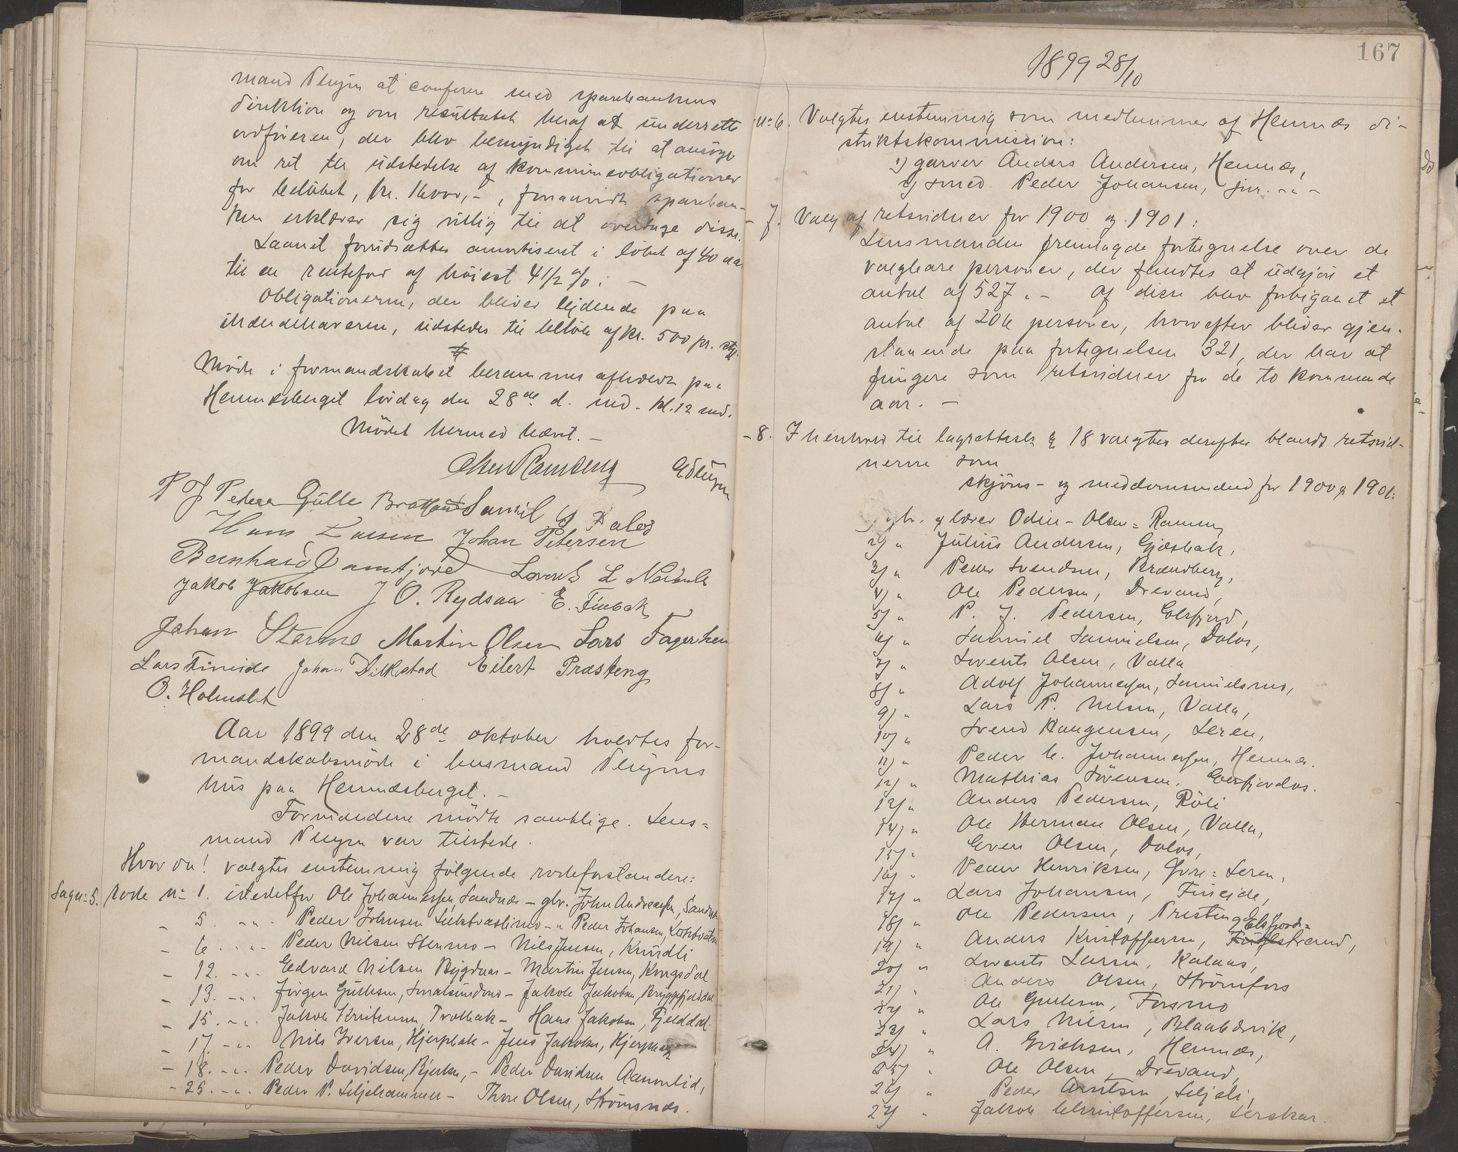 mand Pleym at conferere med sparebankens
direktion og om resultatet heraf at underrette
ordføreren, der blev bemyndiget til at ansøge
om ret til udstedelse af kommuneobligationer
for beløbet, kr. 16000,-, forsaavidt spareban-
ken erklærer sig villig til at overtage disse.
Laanet forudsættes amortiseret i løbet af 40 aar
til en rentefod af høiest 4 1/2 %. –
Obligationerne, der bliver lydende paa
ihændehaveren, udstedes til beløb af kr. 500 pr. stk.
Møde i formandskabet berammes afholdt paa
Hemnesberget lørdag den 28de d. md. kl. 12 md.
Mødet hermed hævet. –
Olsen Ramseng
P J Pedersen Gulle Brattland Samuel S Dalos
Hans Larsen Johan Petersen
Bernhard Lorents L
Jakob Jakobsen J O. Rydsaa E. Finbak
Johan Stormo Martin Olsen Lars Fagerheim
Lars Fineide Johan Eilert Præsteng
O. Holmslet
Aar 1899 den 28de oktober holdtes for-
mandskabsmøde i husmand Pleyms
hus paa Hemnesberget. –
Formændene mødte samtlige. Lens=
mand Pleym var tilstede.
Hvorda! valgtes enstemmig følgende rodeforstandere:
Sag n: 5. Rode n: 1. istedetfor Ole Johannessen, Sandnes – gbr. John Andreassen, Sandnes
– 5. -"- Peder Johnsen – " Peder Johansen,
– 6. -"- Peder Nilsen Stenmo – Nils Jensen,
– 12. -"- Edvard Nilsen Bygdaas – Martin Jensen, Kongsdal
– 13. -"- Jørgen – Jakob Jakobsen, Bryggfjelddal
– 15. -"- Jakob – Hans Jakobsen, Fjelddal
– 17 -"- Nils Iversen, Hjerpbak – Jens Jakobsen, Hjerpbak
– 18. -"- Peder Davidsen, Bjerken, – Peder Davidsen Aanonlid,
– 25. -"- Peder P. Seljehammer – Thore Olsen, Strømsnes.
167
1899 28/10
n: 6. Valgtes enstemmig som medlemmer af Hemnes di-
striktskommission:
1) garver Anders Andersen, Hemnes,
2) smed Peder Johansen, jur. -"-
– 7. Valg af retsvidner for 1900 og 1901:
Lensmanden fremlagde fortegnelse over de
valgbare personer, der fandtes at udgjøre et
antal af 527. – Af disse blev forbigaaet et
antal af 206 personer, hvorefter bliver gjen-
staaende paa fortegnelsen 321, der har at
fungere som retsvidner for de to kommende
aar. –
– 8. I henhold til lagrettesl. § 18 valgtes derefter blandt retsvid-
nerne som
skjøns- og meddomsmænd for 1900 og 1901:
1) gbr. og lærer Odin Olsen Ramseng
2) " Julius Andersen, Gjesbak,
3) " Peder Svendsen, Brændberg,
4) " Ole Pedersen, Drevand,
5) " P. J. Pedersen, Elsfjord,
6) " Samuel Samuelsen, Dalos,
7) " Lorents Olsen, Valla
8) " Adolf Johannessen, Samuelsmo,
9) " Lars P. Nilsen, Valla,
10) " Svend Haagensen, Leren,
11) " Peder C. Johannessen, Hemnes.
12) " Mathias Sørensen, Elsfjordos.
13) " Anders Pedersen, Røli
14) " Ole Herman Olsen, Valla,
15) " Even Olsen, Dalos,
16) " Peder Henriksen, Øvre=Leren,
17) " Lars Johansen, Fineide,
18) " Ole Pedersen,
19) " Anders Kristoffersen, Elsfjord=strand,
20) " Lorents Larsen, Kalaas,
21) " Anders Olsen, Strømfors
22) " Ole Forsmo
23) " Lars Nilsen, Blaabærvik,
24) " A. Erichsen, Hemnes,
25) " Ole Olsen, Drevand,
26) " Peder Arntsen, Seljeli,
27) " Jakob Christoffersen, Lerskar.